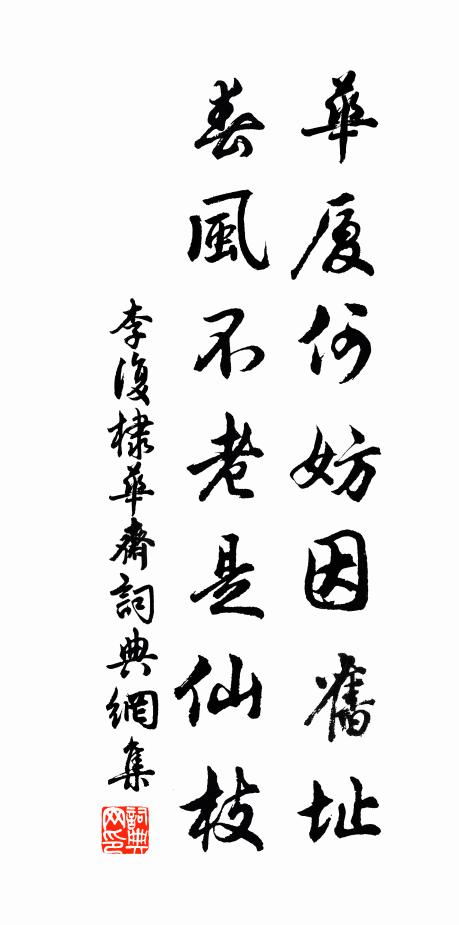 華厦何妨因舊址
春風不老是仙枝
李復棣華齋詞典網集
詞典网印